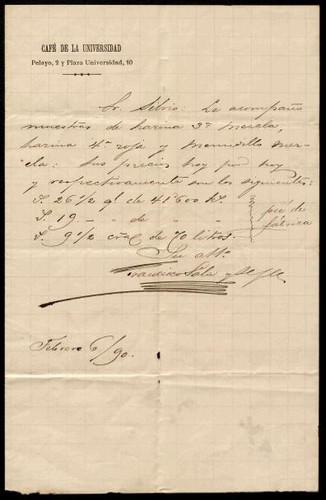 CAFÉ DE LA UNIVERSIDAD
Pelayo, 2 y Plaza Universidad, 10
Sr. Silvio: Le acompaño
muestras de harina 3ª mezcla,
harina 4ª roja y menudillo mez-
cla: Sus precios hoy por hoy
y respectivamente son los siguientes:
26 1/2 ql de 41'600 Ks.
19 " de "
9 1/2 de 70 litros.
pié de
fábrica
Su aff.
Sala y
Febrero 6/90.